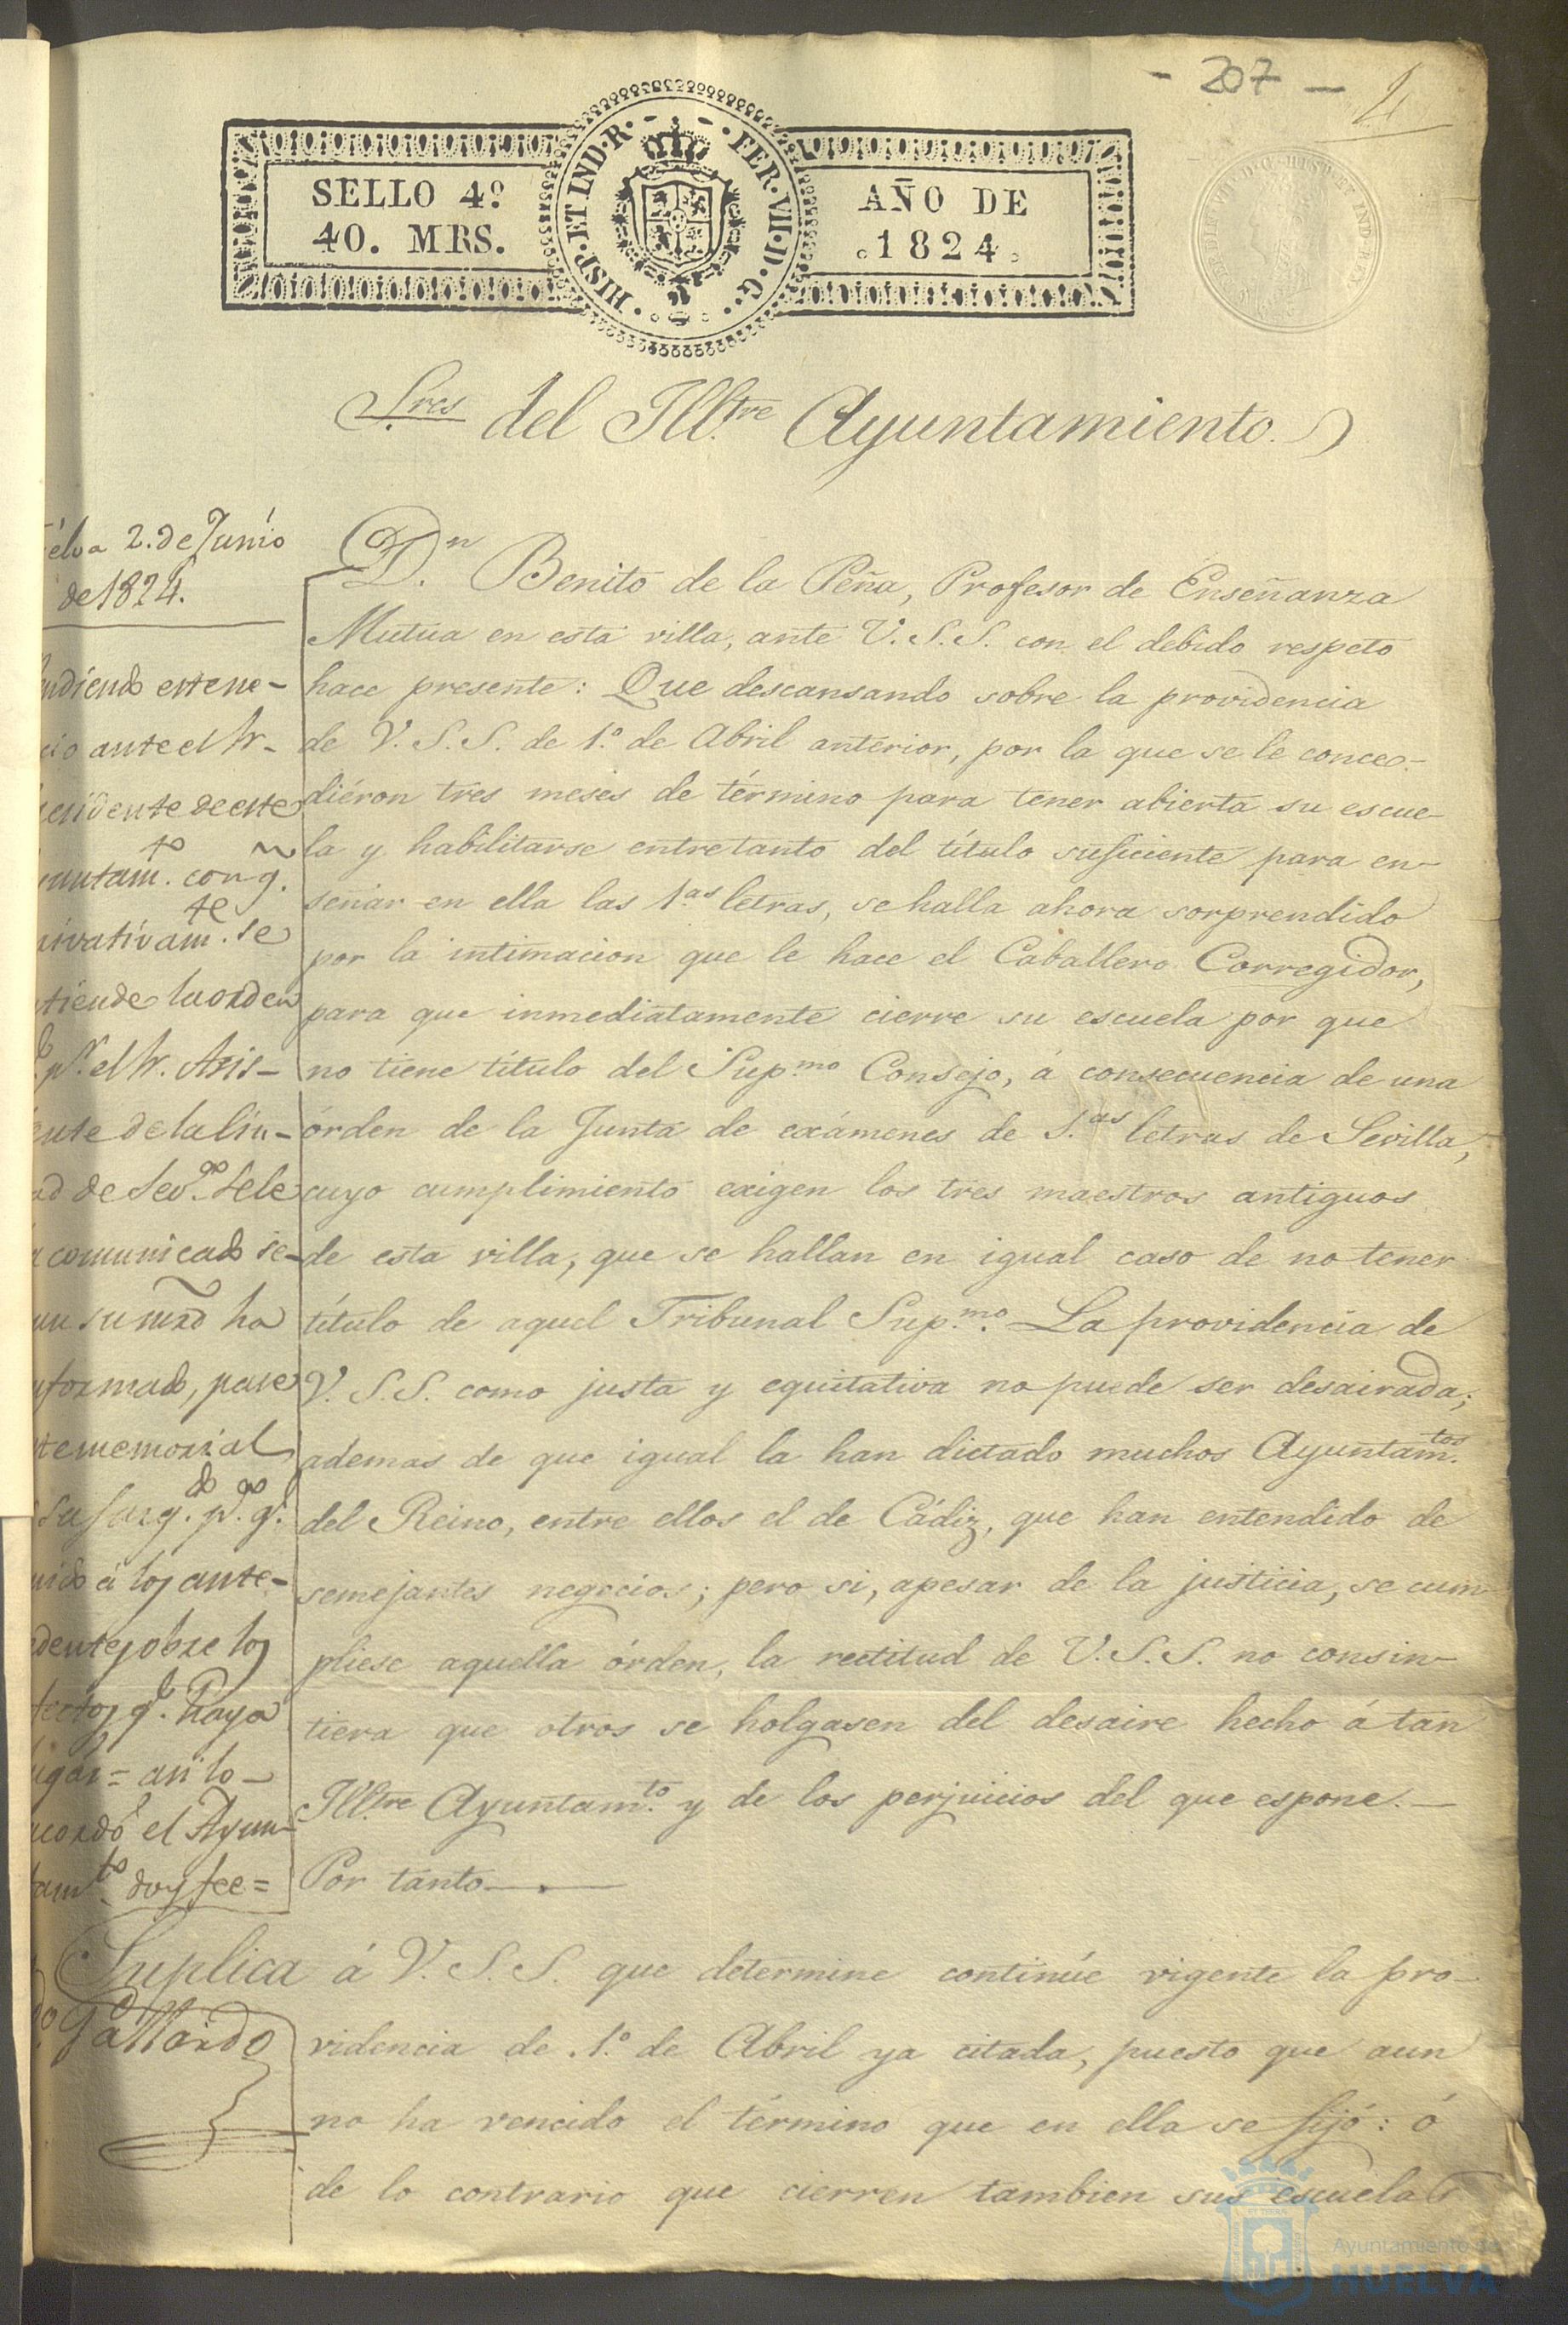 - 207 -
SELLO 4º
40. MRS.
HISP·ET IND·R· FER·VII·D·G·
AÑO DE
1824
S.res del Ill.tre Ayuntamiento.
elva 2. de Junio
de 1824.
endiendo este ne-
cio ante el Sr.
esidente de este
untam.to con q.
rivativam.te se
tiende la orden
q.e p.r el Sr. Asis-
ente de la ciu-
ad de Sev.a se le
comunicado se-
un su mrd ha
nformado, pase
te memorial
a su Juzg.do p.a q.e
unido á los ante-
dentes obre los
fectos q.e haya
ugar= asi lo
acordó el Ayun-
tam.to doy fee=
Gallardo
D.n Benito de la Peña, Profesor de Enseñanza
Mutua en esta villa, ante V.S.S. con el debido respeto
hace presente: Que descansando sobre la providencia
de V.S.S. de 1.º de Abril anterior, por la que se le conce-
diéron tres meses de término para tener abierta su escue-
la y habilitarse entretanto del título suficiente para en-
señar en ella las 1.as letras, se halla ahora sorprendido
por la intimacion que le hace el Caballero Corregidor,
para que inmediatamente cierre su escuela por que
no tiene título del Sup.mo Consejo, á consecuencia de una
órden de la Junta de exámenes de 1.as letras de Sevilla,
cuyo cumplimiento exigen los tres maestros antiguos
de esta villa, que se hallan en igual caso de no tener
título de aquel Tribunal Sup.mo. La providencia de
V.S.S. como justa y equitativa no puede ser desairada;
ademas de que igual la han dictado muchos Ayuntam.tos
del Reino, entre ellos el de Cádiz, que han entendido de
semejantes negocios; pero si, apesar de la justicia, se cum
pliese aquella órden, la rectitud de V.S.S. no consin-
tiera que otros se holgasen del desaire hecho á tan
Ill.tre Ayuntam.to y de los perjuicios del que espone.—
Por tanto—
Suplica á V.S.S. que determine continúe vigente la pro-
videncia de 1.º de Abril ya citada, puesto que aun
no ha vencido el término que en ella se fijó: ó
de lo contrario que cierren tambien sus escuelas
Ayuntamiento de
HUELVA